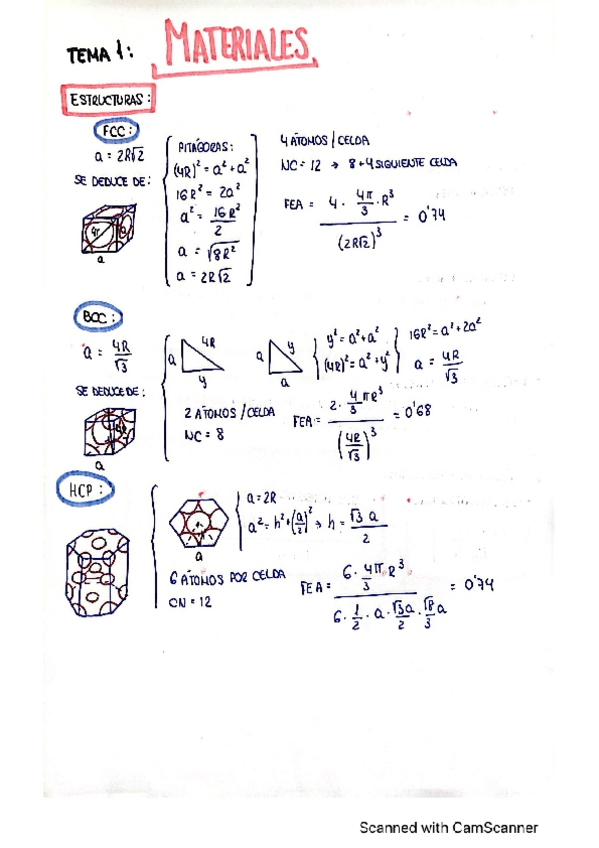 TEMA 1: MATERIALES
ESTRUCTURAS:
FCC:
a = 2R√2
SE DEDUCE DE:
4R
a
a
PITÁGORAS:
(4R)² = a² + a²
16R² = 2a²
a² = 16R²/2
a = √8R²
a = 2R√2
4 ÁTOMOS / CELDA
NC = 12 → 8+4 SIGUIENTE CELDA
FEA = 4 · 4π/3 · R³ / (2R√2)³ = 0'74
BCC:
a = 4R/√3
SE DEDUCE DE:
4R
a
a 4R y
a y a
y² = a² + a²
(4R)² = a² + y²
16R² = a² + 2a²
a = 4R/√3
2 ÁTOMOS / CELDA
NC = 8
FEA = 2 · 4/3 πR³ / (4R/√3)³ = 0'68
HCP:
a
a = 2R
a² = h² + (a/2)² → h = √3 a/2
6 ÁTOMOS POR CELDA
CN = 12
FEA = 6 · 4π/3 · R³ / 6 · 1/2 · a · √3a/2 · √8/3 a = 0'74
Scanned with CamScanner